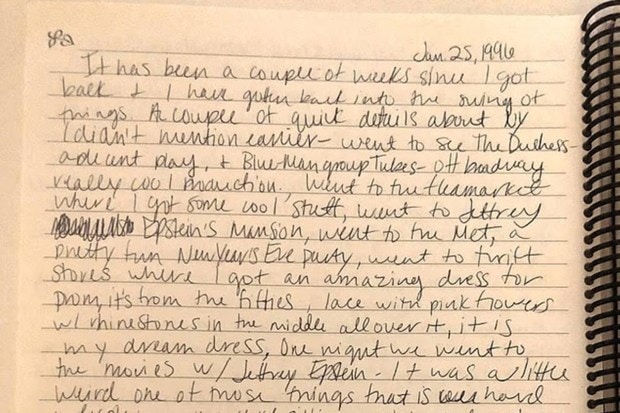 Jan. 25, 1996
It has been a couple of weeks since I got
back & I have gotten back into the swing of
things. A couple of quick details about NY
I didn't mention earlier - went to see The Duchess-
a decent play, & Blue Man group Tubes - off broadway
really cool production. Went to the fleamarket
where I got some cool stuff, went to Jeffrey
Epstein's mansion, went to the Met, a
pretty fun New Year's Eve party, went to thrift
stores where I got an amazing dress for
prom, it's from the fifties, lace with pink flowers
w/ rhinestones in the middle all over it, it is
my dream dress. One night we went to
the movies w/ Jeffrey Epstein - It was a little
weird one of those things that is hard